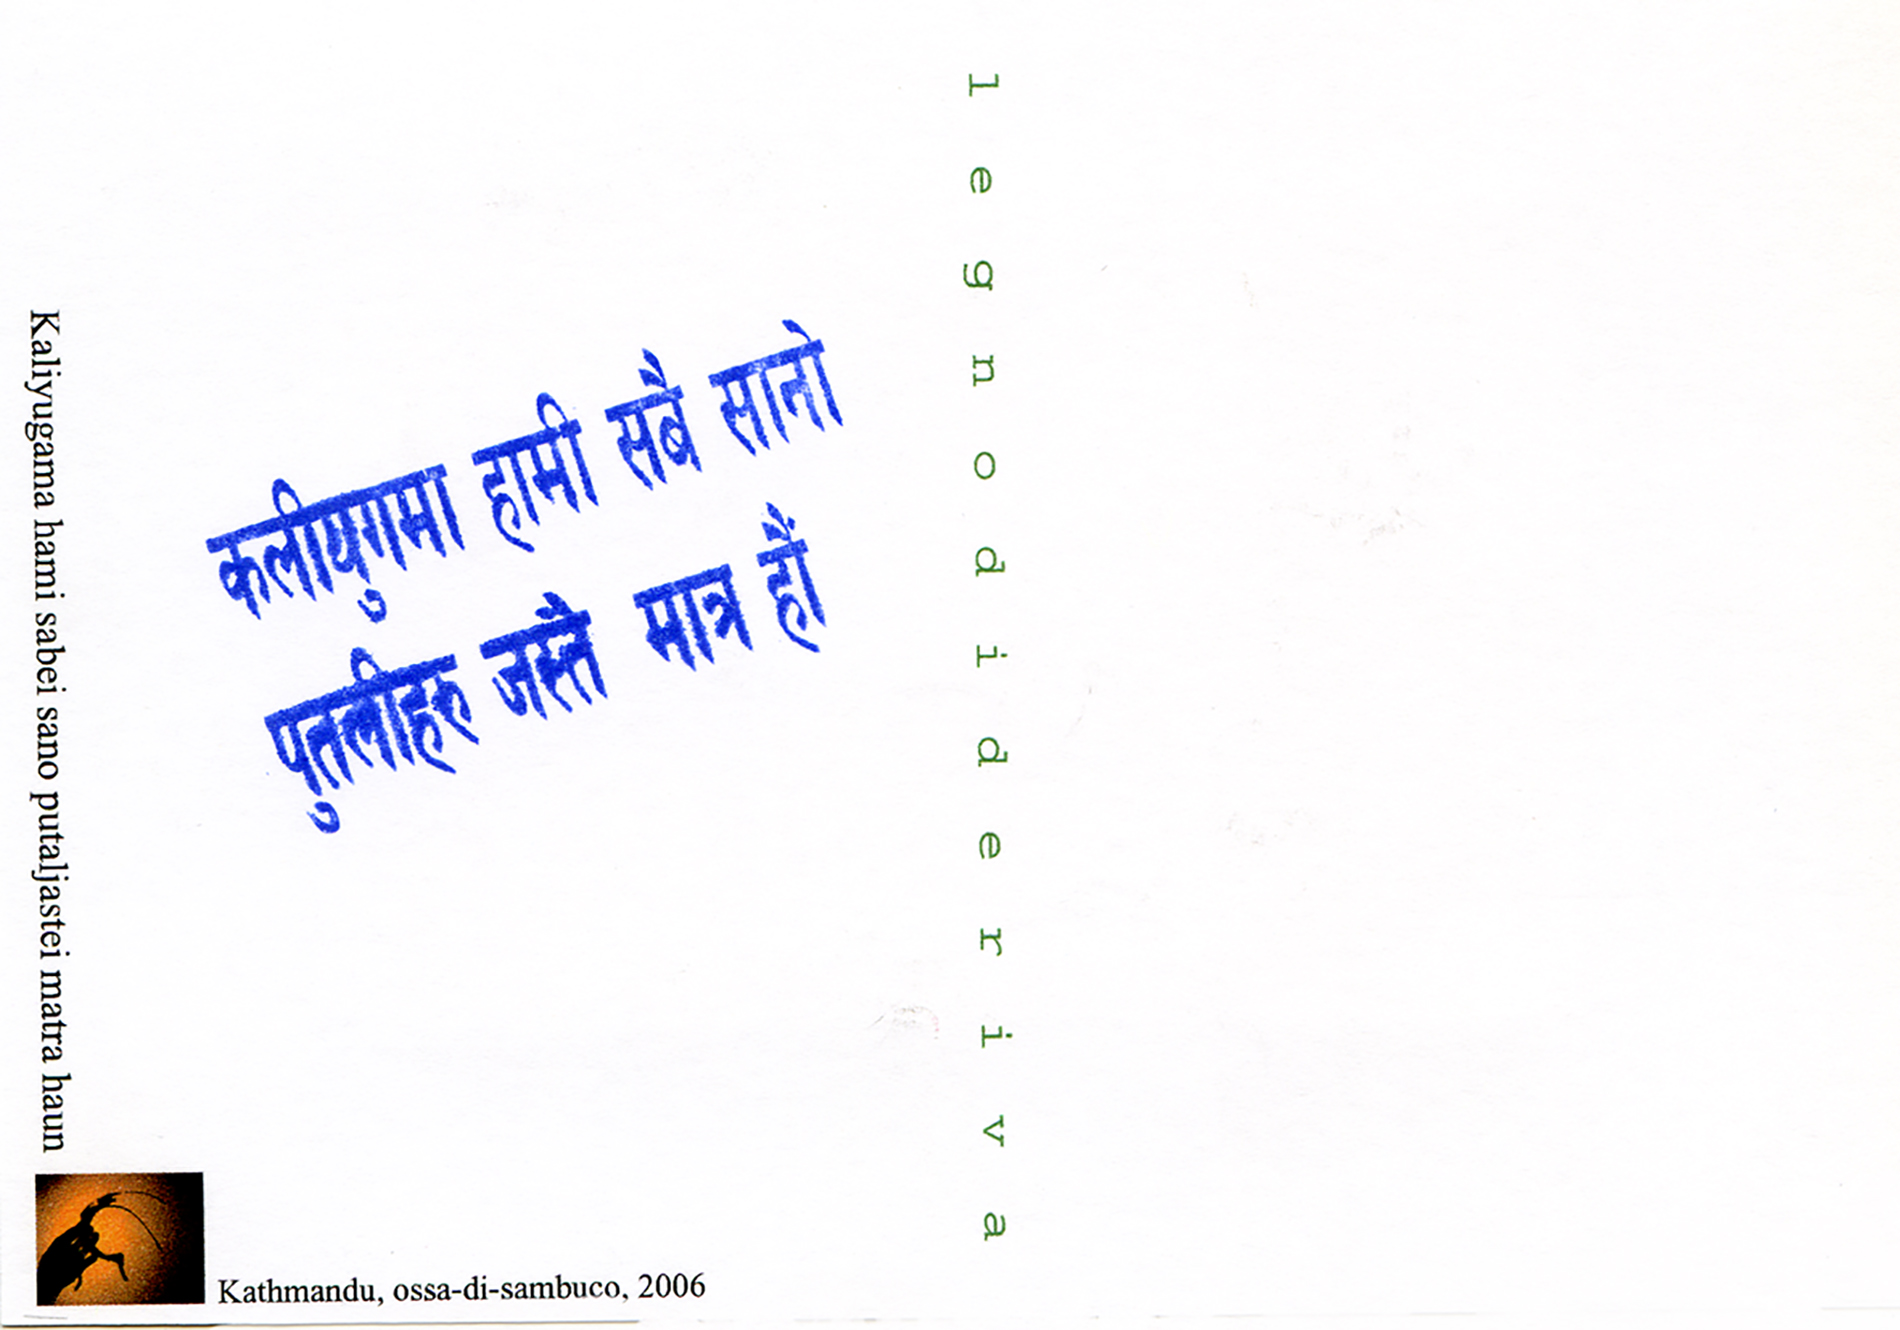 कलीयुगमा हामी सबै सानो
पुतलीहरु जस्तै मात्र हौं
Kaliyugama hami sabei sano putaljastei matra haun
Kathmandu, ossa-di-sambuco, 2006
l e g n o d i d e r i v a